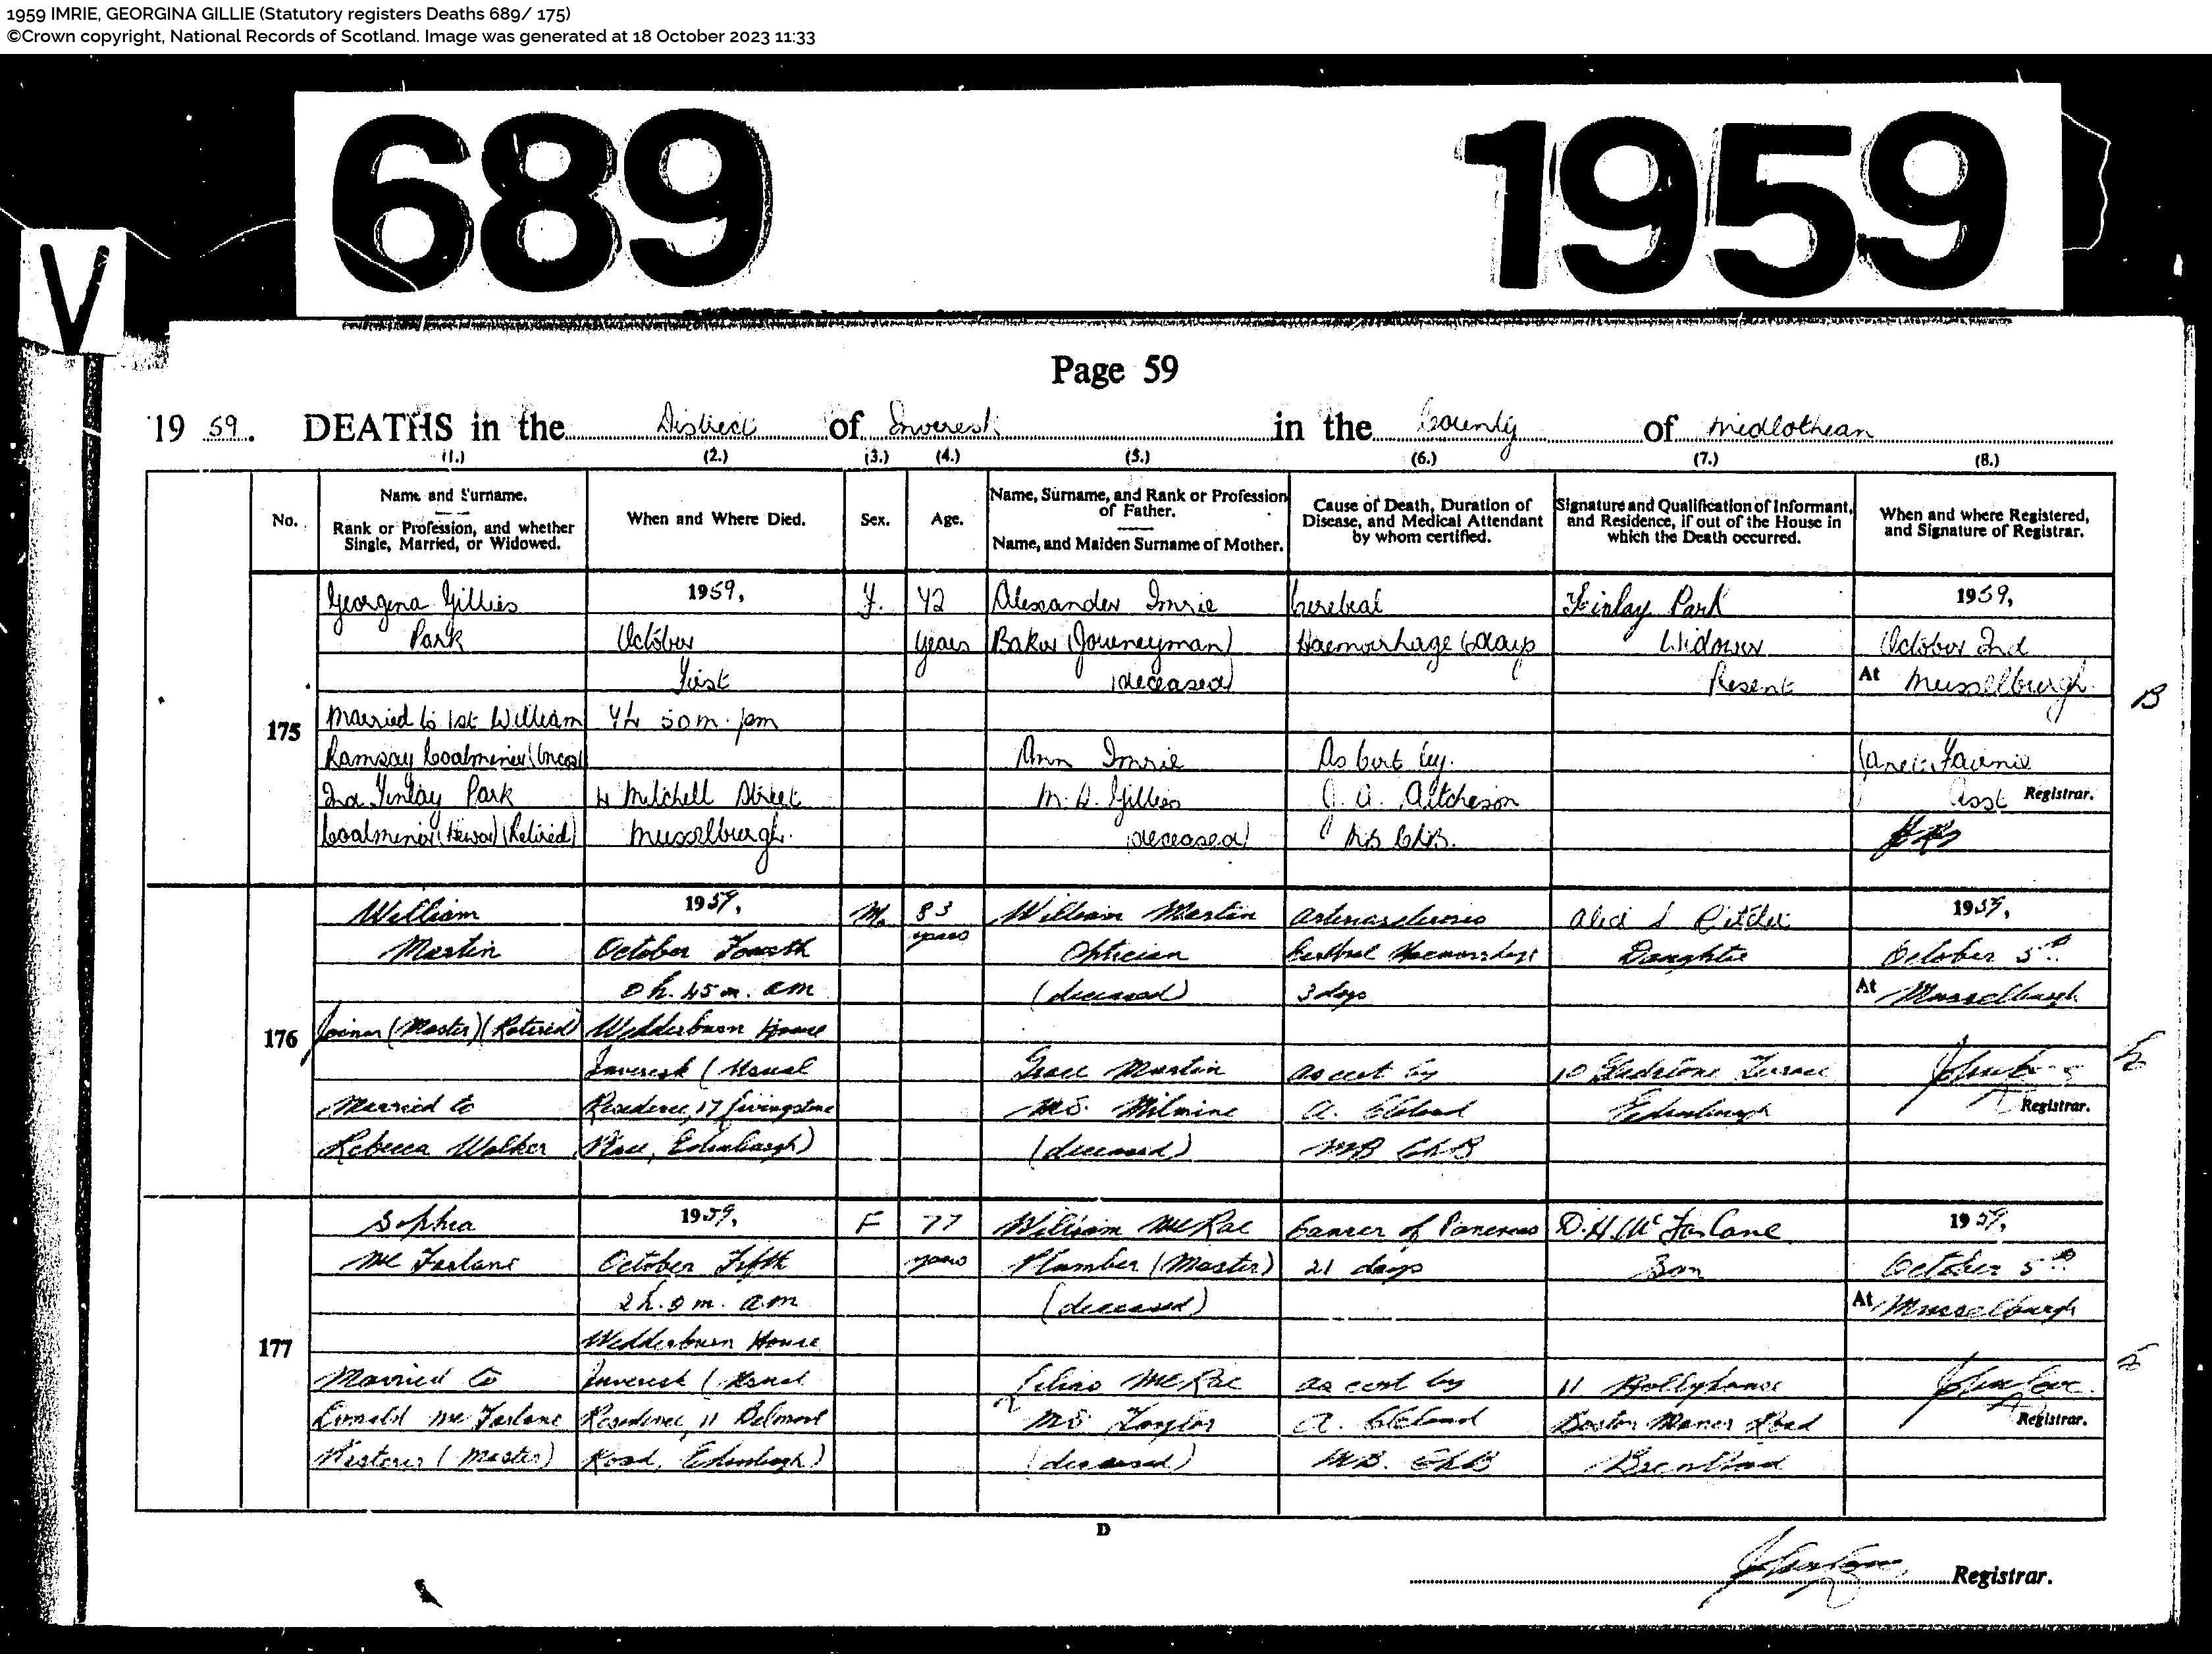 1959 IMRIE, GEORGINA GILLIE (Statutory registers Deaths 689/ 175)
©Crown copyright, National Records of Scotland. Image was generated at 18 October 2023 11:33
689 1959
V
Page 59
19 59. DEATHS in the District of Inveresk in the County of Midlothian
(1.) (2.) (3.) (4.) (5.) (6.) (7.) (8.)
No.
Name and Surname.
Rank or Profession, and whether
Single, Married, or Widowed.
When and Where Died.
Sex.
Age.
Name, Surname, and Rank or Profession
of Father.
Name, and Maiden Surname of Mother.
Cause of Death, Duration of
Disease, and Medical Attendant
by whom certified.
Signature and Qualification of Informant,
and Residence, if out of the House in
which the Death occurred.
When and where Registered,
and Signature of Registrar.
175
Georgina Gillies
Park
Married to 1st William
Ramsay Coalminer
2nd Finlay Park
Coalminer (Hewer) (Retired)
1959,
October
First
50m. pm
4 Mitchell Street
Musselburgh.
F.
years
Alexander Imrie
Baker (Journeyman)
(deceased)
Ann Imrie
M.S. Gillies
(deceased)
Cerebral
Haemorrhage 6days
As Cert by.
J. A. Aitcheson
MB ChB.
Finlay Park
Widower
Present
1959,
October 2nd
At Musselburgh
Janet Fairnie
Asst Registrar.
B
176
William
Martin
Joiner (Master) (Retired)
Married to
Rebecca Walker
1959,
October Fourth
0h. 45m. am
Wedderburn House
Inveresk (Usual
Residence, 17 Livingstone
Place, Edinburgh)
M.
83
years
William Martin
Optician
(deceased)
Grace Martin
M.S. Milmine
(deceased)
Arteriosclerosis
Cerebral Haemorrhage
3 days
as cert by
A. Cleland
MB ChB
Daughter
10 Gladstone Terrace
Edinburgh
1959,
October 5th
At Musselburgh
Registrar.
177
Sophia
McFarlane
Married to
Donald McFarlane
(Master)
1959,
October Fifth
2h. 0m. am
Wedderburn House
Inveresk (Usual
Residence, 11 Belmont
Road, Edinburgh)
F
77
years
William McRae
Plumber (Master)
(deceased)
Lilias McRae
MS Taylor
(deceased)
Cancer of Pancreas
21 days
as cert by
A. Cleland
M.B. ChB
D.H. McFarlane
Son
11 Hollyhouse
Boston Manor Road
Brentford
1959,
October 5th
At Musselburgh
Registrar.
D
Registrar.